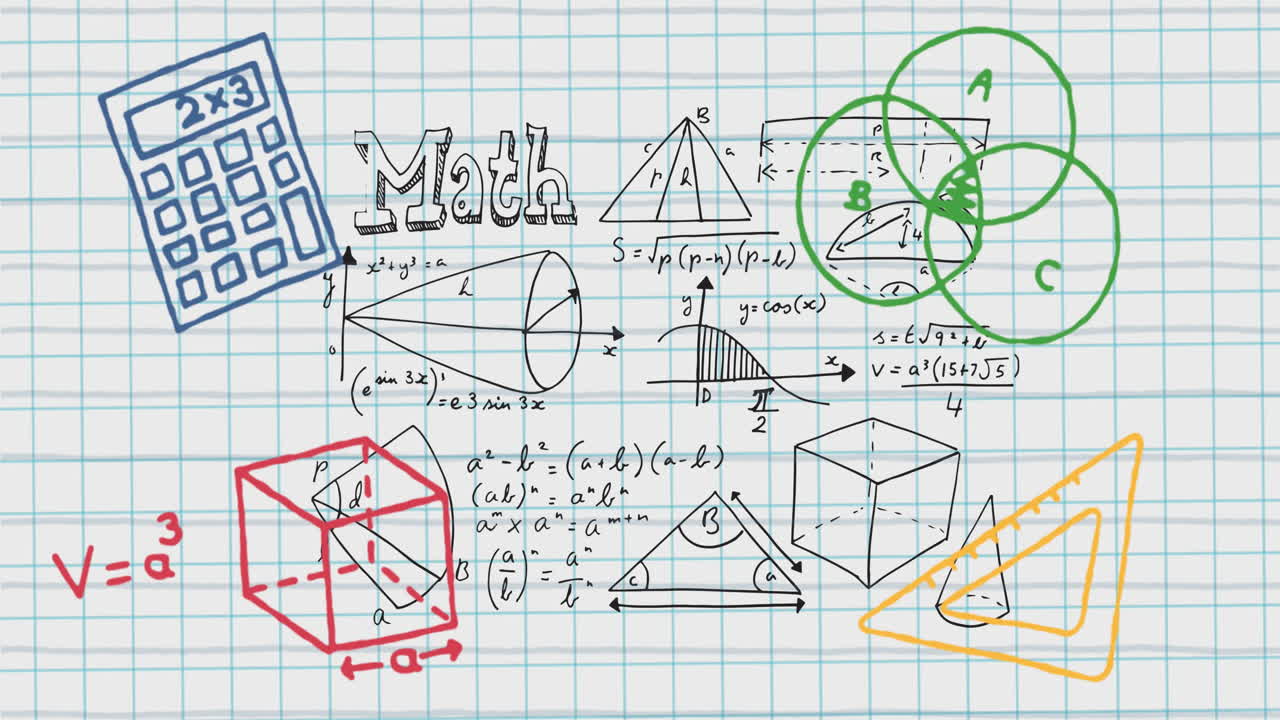 2×3
Math
B
c
a
p
h
S = √p(p-n)(p-b)
A
B
C
P
R
4
a
x²+y³=a
y
h
x
o
(e^sin 3x)' = e3 sin 3x
y
y=cos(x)
x
D
π/2
s = t√9²+b
V = a³(15+7√5)
4
V = a³
P
d
B
a
a
a² - b² = (a+b)(a-b)
(ab)ⁿ = aⁿbⁿ
aᵐ × aⁿ = aᵐ⁺ⁿ
(a/b)ⁿ = aⁿ/bⁿ
B
c
a